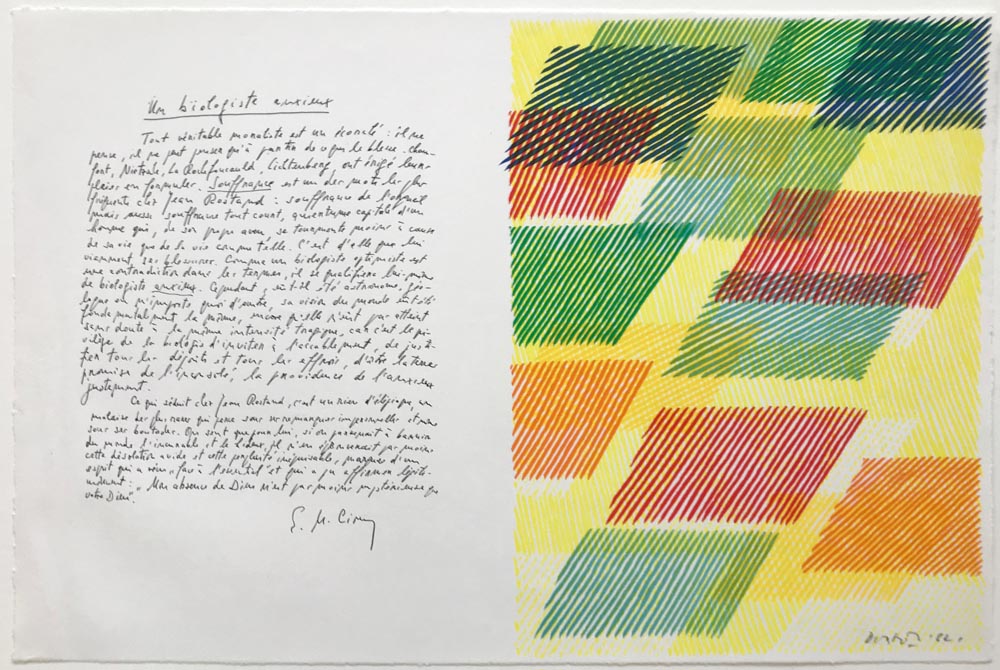 Un biologiste anxieux
Tout véritable moraliste est un écorché : il ne
pense, il ne peut penser qu'à partir de ce qui le blesse. Cham-
fort, Nietzsche, La Rochefoucauld, Lichtenberg, ont érigé leurs
en formules. Souffrance est un des mots les plus
fréquents chez Jean Rostand : souffrance de l'orgueil
mais aussi souffrance tout court, capitale d'un
homme qui, de son propre aveu, se tourmente moins à cause
de sa vie que de la vie comme telle. C'est d'elle que lui
viennent ses blessures. Comme un biologiste optimiste est
une contradiction dans les termes, il se qualifiera lui-même
de biologiste anxieux. Cependant, eût-il été astronome, géo-
logue ou n'importe quoi d'autre, sa vision du monde eût été
fondamentalement la même, encore qu'elle n'eût pas atteint
sans doute à la même intensité tragique, car c'est le pri-
vilège de la biologie d'inviter à l'accablement, de justi-
fier tous les dégoûts et tous les effrois, d'être la terre
promise de l'insensé, la providence de l'anxieux
justement.
Ce qui séduit chez Jean Rostand, c'est un rien d'élégiaque, un
malaise qui perce sous ses remarques impersonnelles et même
sous ses boutades. Que sont que pour lui, si on parvenait à bannir
du monde l'incurable et le hideux, il n'en éprouverait pas moins
cette désolation avide et cette perplexité inépuisable, marques d'un
esprit qui a "rêvé face à l'essentiel" et qui a pu affirmer légiti-
mement : "Mon absence de Dieu n'est pas moins mystérieuse que
votre Dieu".
E. M. Cioran
Dorazio '82.